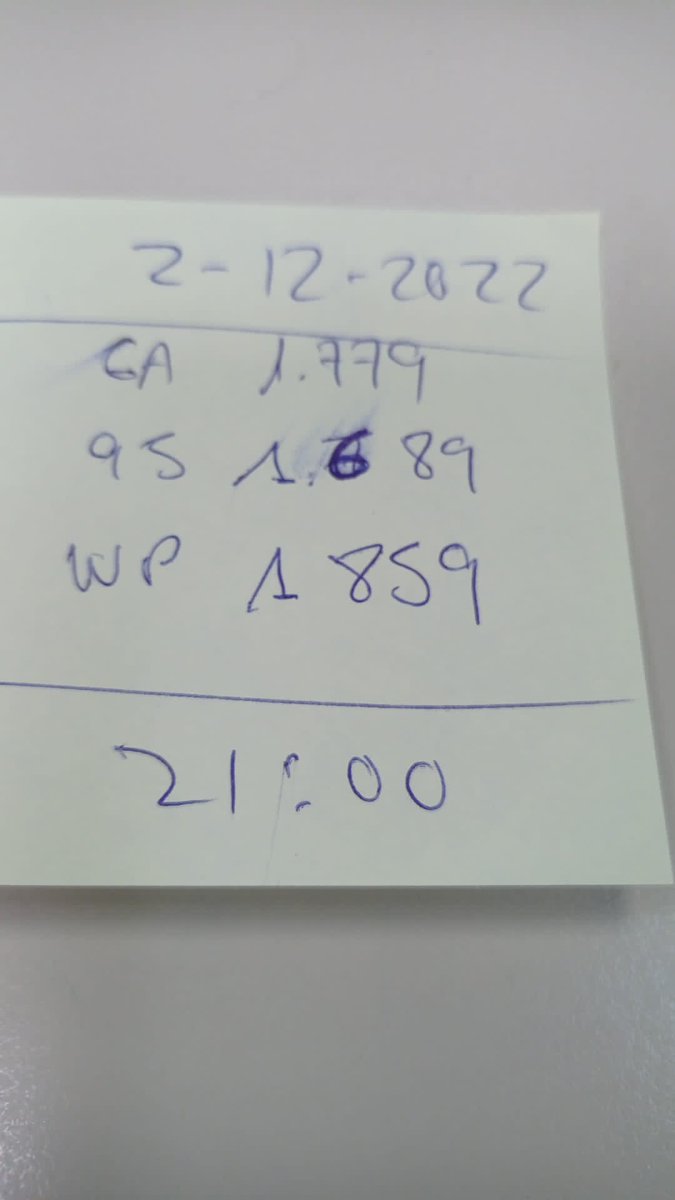 2-12-2022
GA 1.779
95 1.689
WP 1 859
21:00